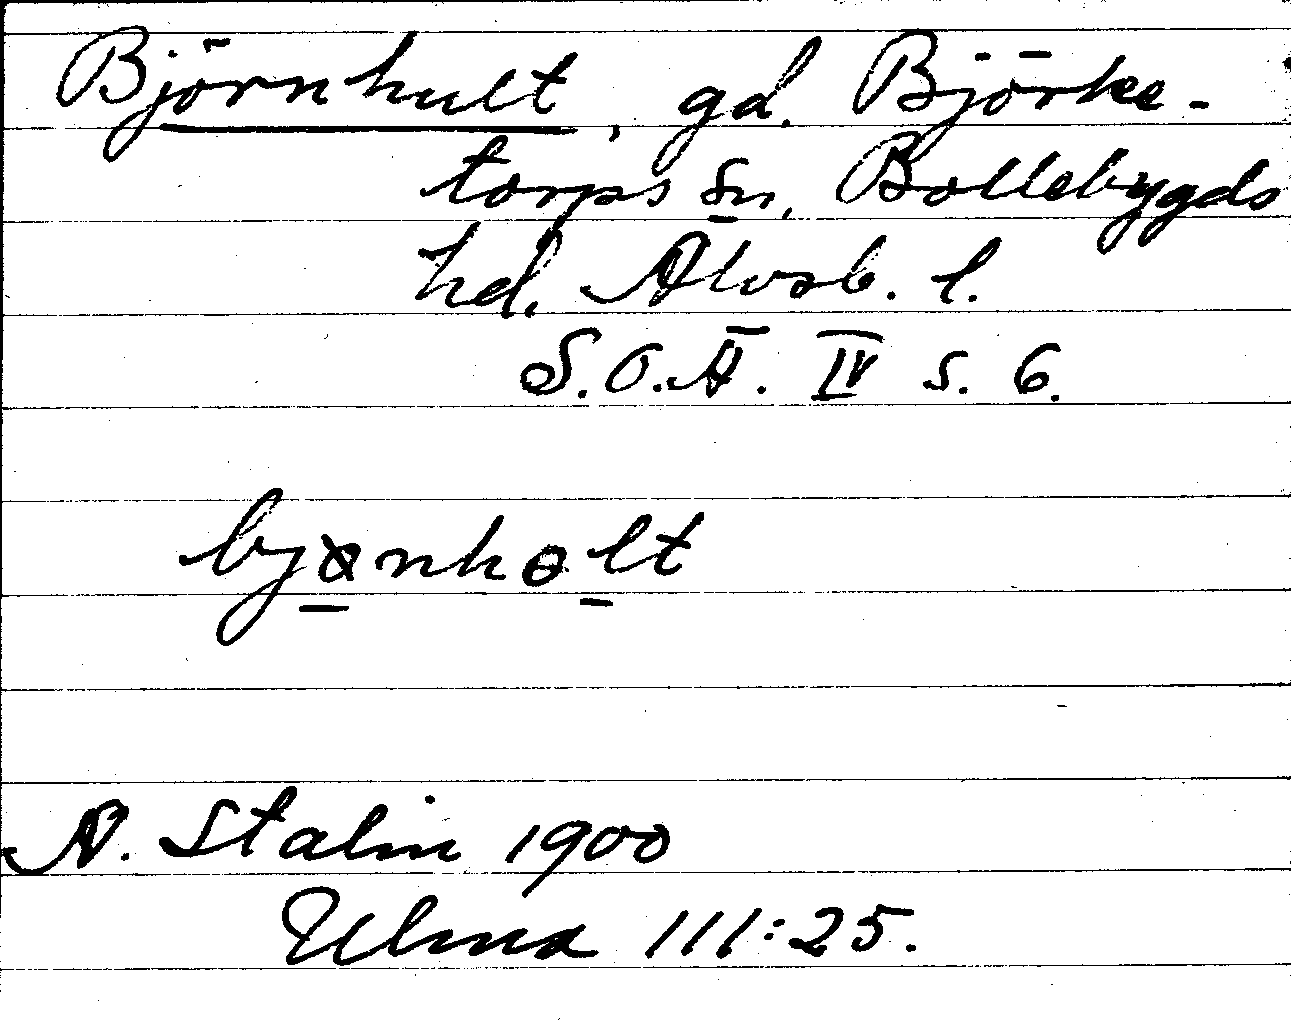 Björnhult, gd. Björke-
torps sn, Bollebygds
hd, Älvsb. l.
S.O.Ä. IV s. 6.
bjønhɵlt
A. Stalin 1900
Ulma 111:25.